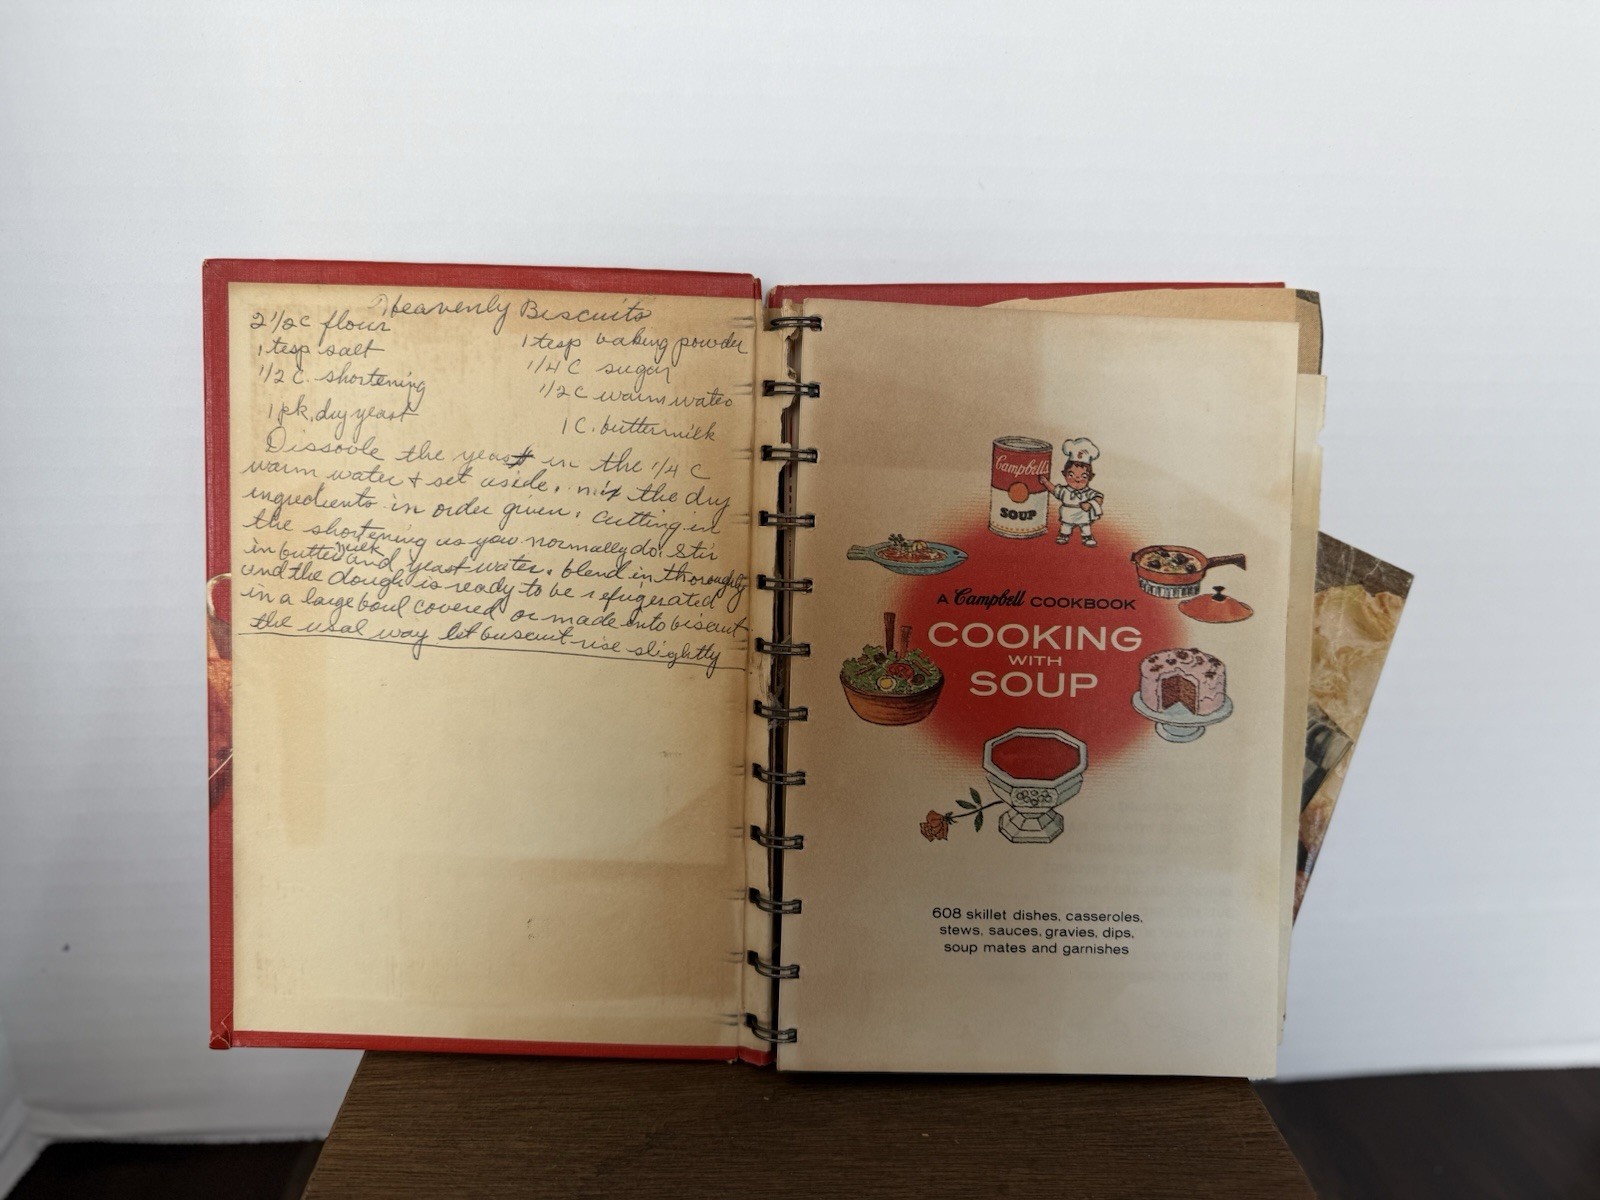 Heavenly Biscuits
2 1/2 c flour
1 tesp baking powder
1 tesp salt
1/4 C sugar
1/2 C. shortening
1/2 C warm water
1 pk. dry yeast
1 C. buttermilk
Dissovle the yeast in the 1/4 C
warm water + set aside. mix the dry
ingredients in order given, cutting in
the shortening as you normally do. Stir
in butter milk and yeast water. blend in thoroughly
and the dough is ready to be refrigerated
in a large boul covered or made into biscuit
the usal way let buscuit rise slightly
Campbell's
SOUP
A Campbell COOKBOOK
COOKING
WITH
SOUP
608 skillet dishes, casseroles,
stews, sauces, gravies, dips,
soup mates and garnishes